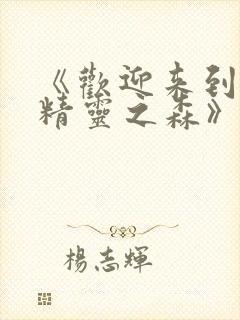 《歡迎来到
精靈之森》
楊志輝